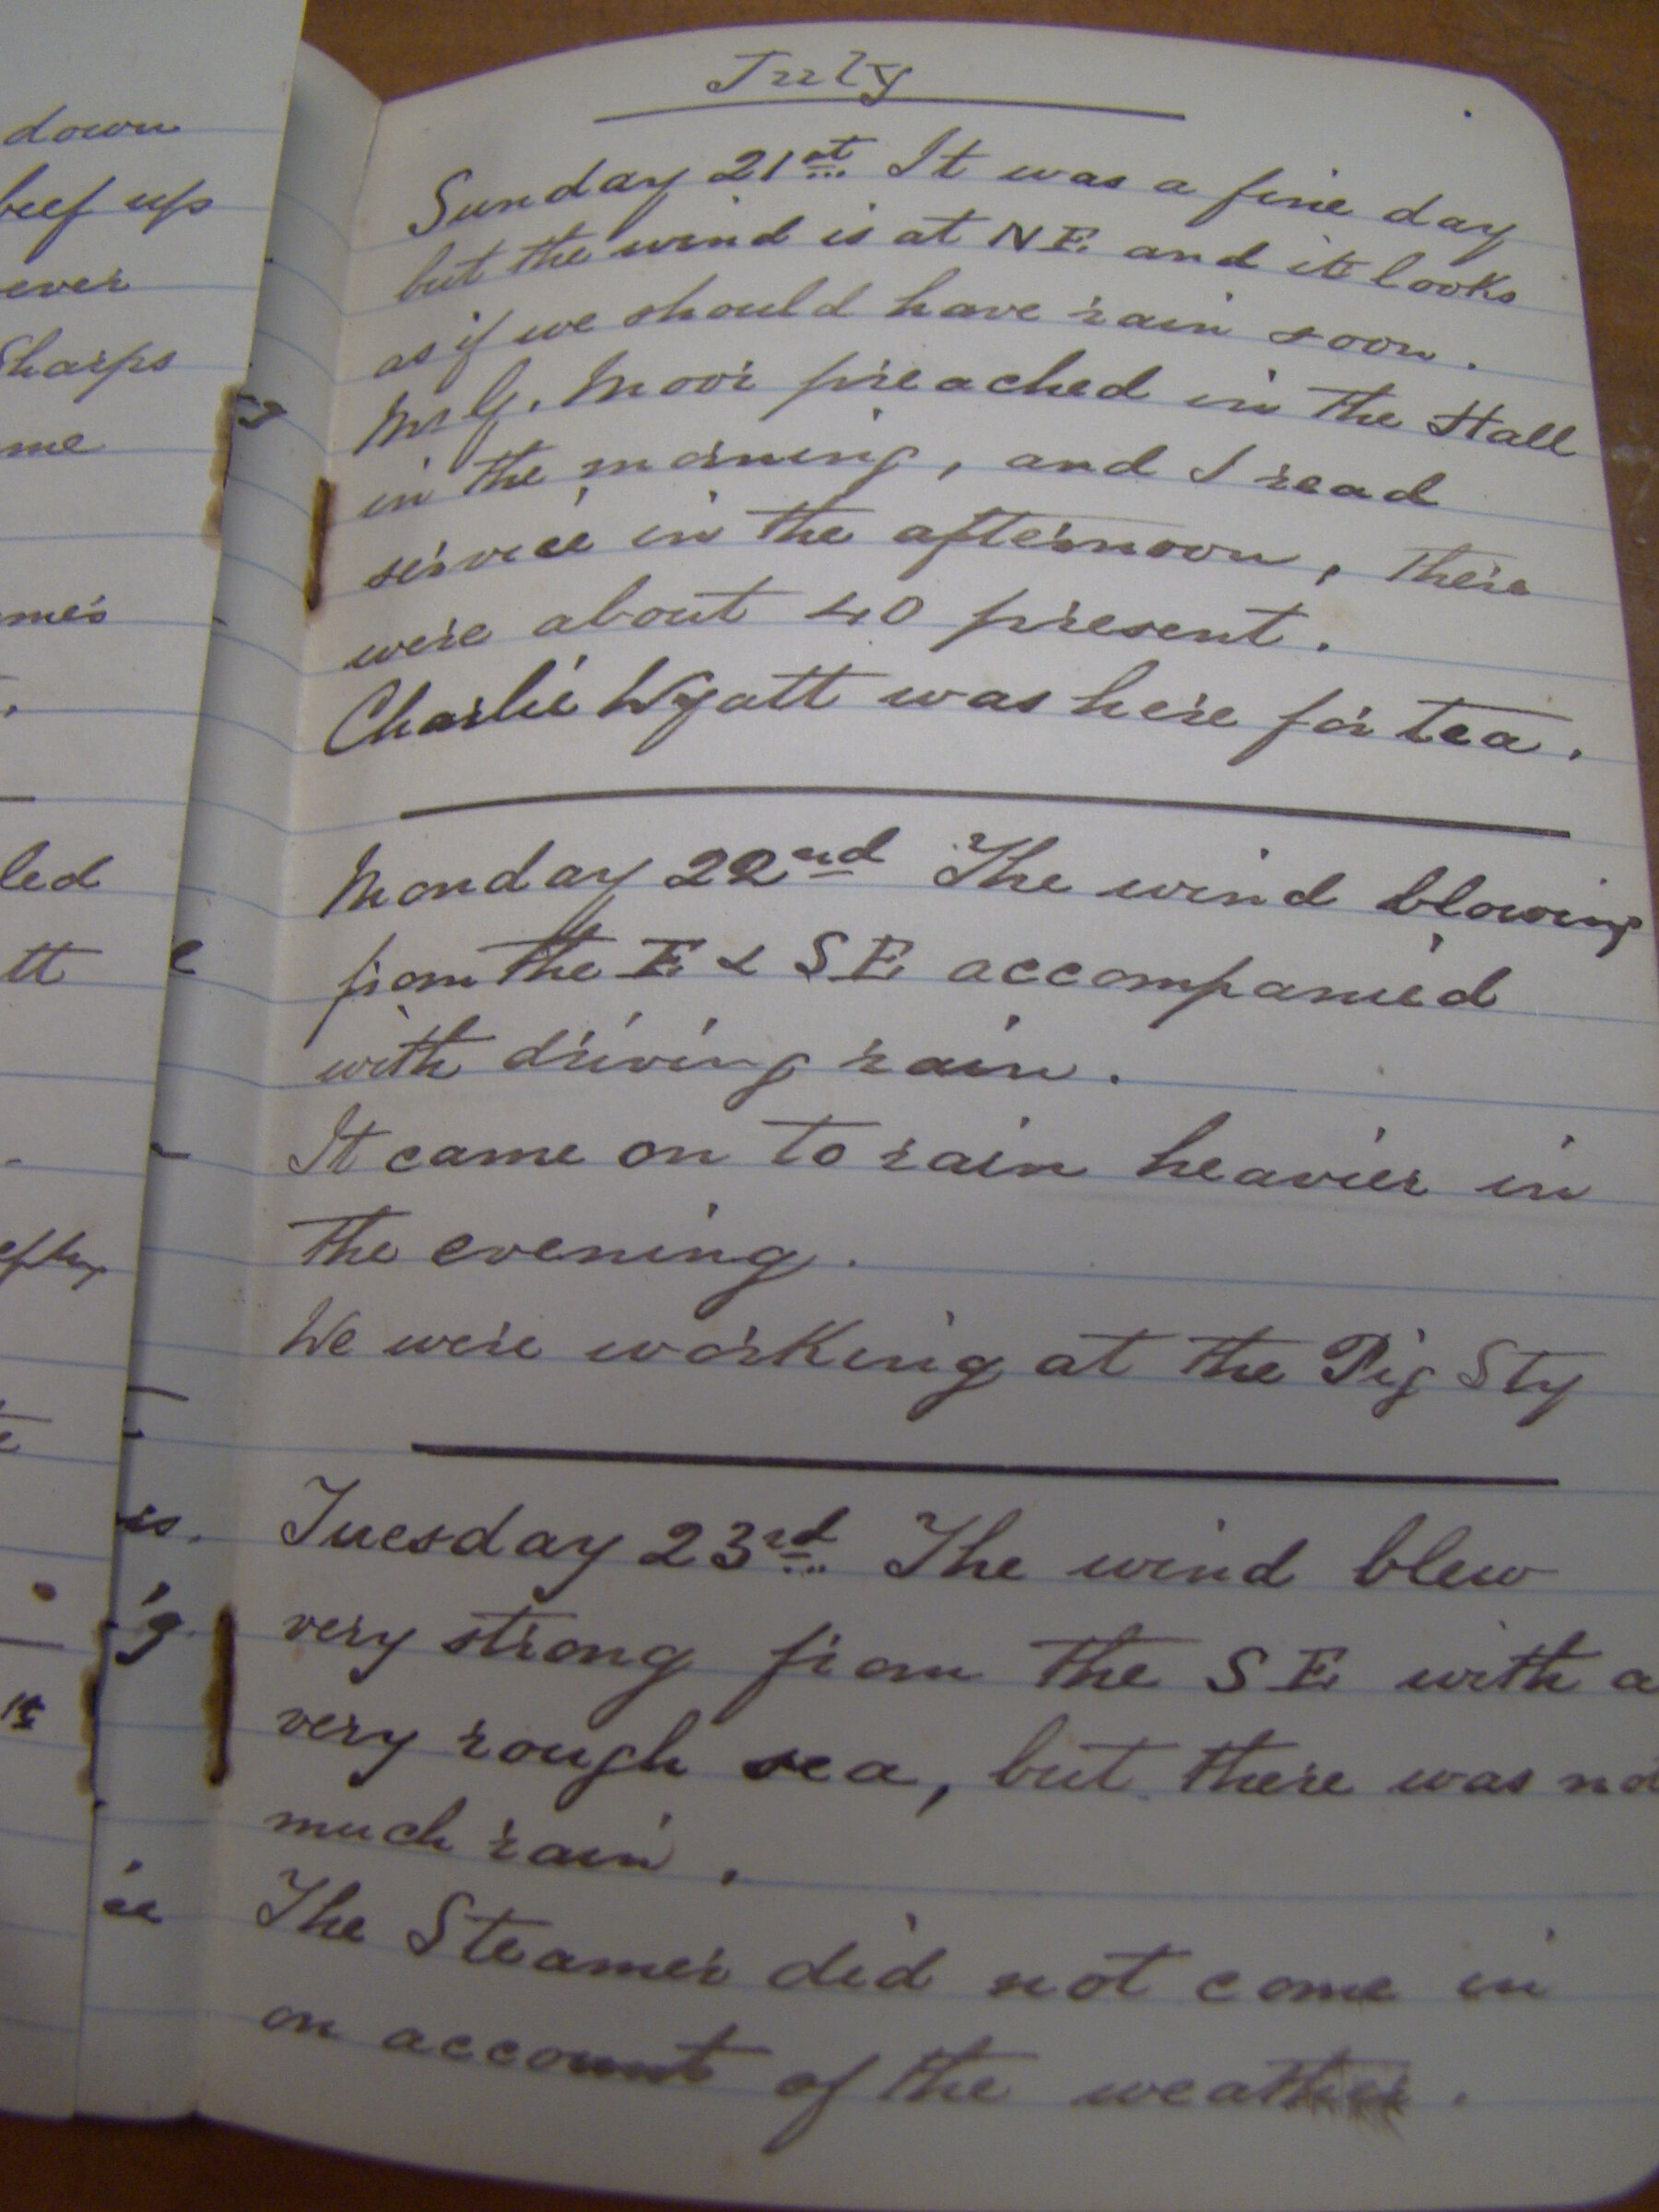 down
beef up
ever
Sharps
me
led
tt
July
Sunday 21st It was a fine day
but the wind is at NE and it looks
as if we should have rain soon.
Mr G. Moor preached in the Hall
in the morning, and I read
service in the afternoon, there
were about 40 present.
Charlie Wyatt was here for tea.
Monday 22nd The wind blowing
from the E & SE accompanied
with driving rain.
It came on to rain heavier in
the evening.
We were working at the Pig Sty
Tuesday 23rd The wind blew
very strong from the SE with a
very rough sea, but there was not
much rain.
The Steamer did not come in
on account of the weather.